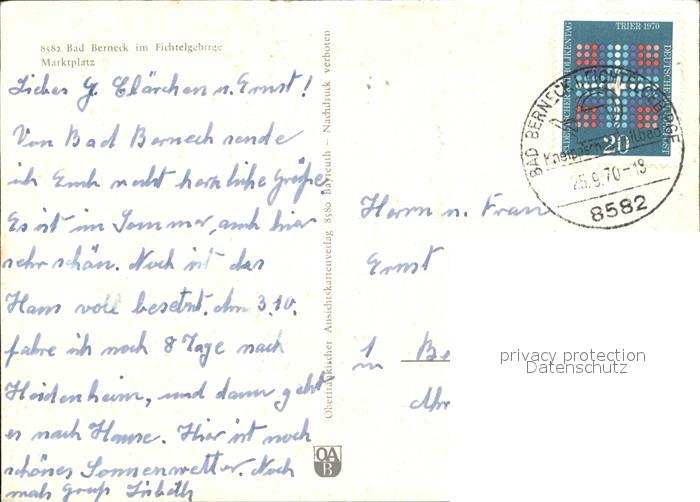 8582 Bad Berneck im Fichtelgebirge
Marktplatz
Liebes G. Clärchen u. Ernst!
Von Bad Berneck sende
ich Euch recht herzliche Grüße
Es ist im Sommer, auch hier
sehr schön. Noch ist das
Haus voll besetzt. Am 3.10.
fahre ich noch 8 Tage nach
Heidenheim, und dann geht
es nach Hause. Hier ist noch
schönes Sonnenwetter. Noch
mals Gruß Lisbeth
Oberfränkischer Ansichtskartenverlag 8580 Bayreuth - Nachdruck verboten
OA
B
TRIER 1970
DEUTSCHER KATHOLIKENTAG
20
BAD BERNECK · FICHTELGEBIRGE
Kneippheilbad
25.9.70-18
8582
Herrn u. Frau
Ernst
1 Be
privacy protection
Datenschutz